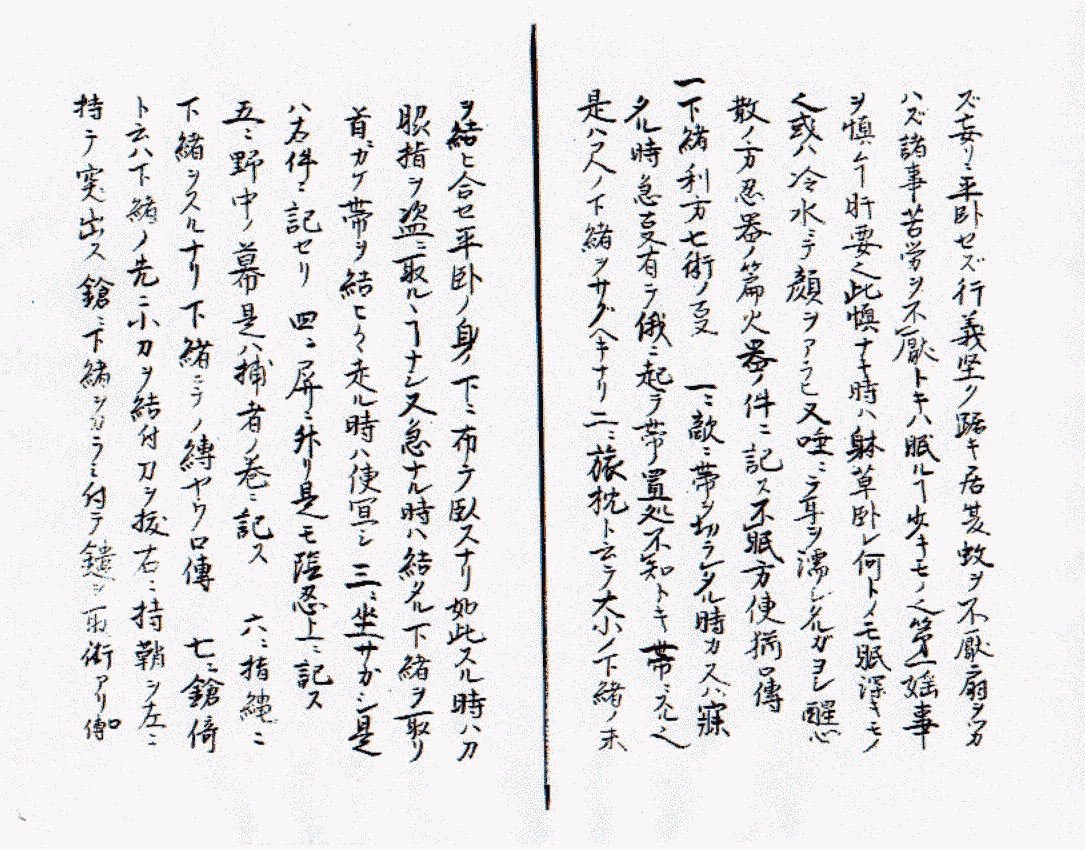 ズ妄リニ平臥セズ行義堅ク踞キ居其蚊ヲ不厭扇ヲツカ
ハズ諸事苦労ヲ不厭トキハ眠ルヿ少キモノ也第一婬事
ヲ慎ムヿ肝要也此慎ナキ時ハ躰草臥レ何トメモ眠深キモノ
也或ハ冷水ニテ顔ヲアラヒ又唾ニテ耳ヲ濡シタルガヨシ醒心
散ノ方忍器ノ篇火器ノ件ニ記ス不眠方便猶口傳
一下緒利方七術ノ㕝 一ニ敵ニ帯ヲ切ラレタル時カスハ寐
タル時急㕝有テ俄ニ起テ帯ノ置処不知トキ帯ニスル也
是ハ人ノ下緒ヲサグヘキナリ二ニ旅枕ト云テ大小ノ下緒ノ末
ヲ結ヒ合セ平臥ノ身ノ下ニ布テ臥スナリ如此スル時ハ刀
脇指ヲ盗ニ取ルヽヿナシ又急ナル時ハ結タル下緒ヲ取リ
首ニカケ帯ヲ結ヒ〱走ル時ハ便冝シ三ニ坐サガシ是
ハ名件ニ記セリ 四ニ屏ニ外リ是モ陰忍上ニ記ス
五ニ野中ノ幕是ハ捕者ノ巻ニ記ス 六ニ指縄ニ
下緒ヲスルナリ下緒ニテノ縛ヤウ口傳 七ニ鎗倚
ト云ハ下緒ノ先ニ小刀ヲ結付刀ヲ抜右ニ持鞘ヲ左ニ
持テ突出ス鎗ニ下緒ヲカラミ付テ鑓ヲ取術アリ口傳